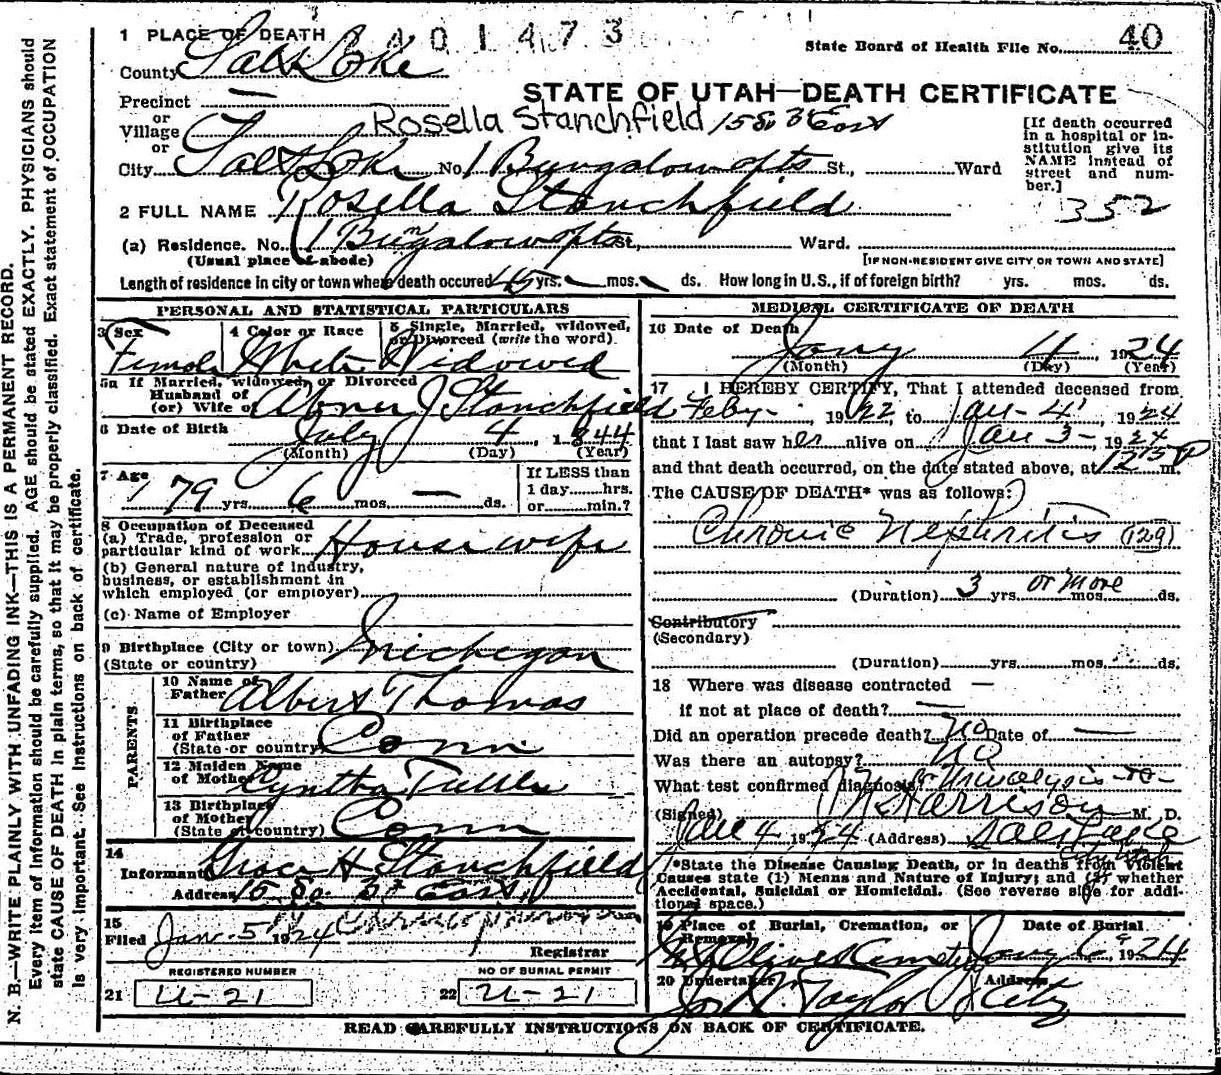 1 PLACE OF DEATH
State Board of Health File No. 40
County Salt Lake
STATE OF UTAH—DEATH CERTIFICATE
Precinct —
or
Village Rosella Stanchfield 15 So 3 East
or
City Salt Lake No. 1 Bungalow Apts St., Ward
[If death occurred in a hospital or institution give its NAME instead of street and number.]
352
2 FULL NAME Rosella Stanchfield
(a) Residence. No. 1 Bungalow Apts St., Ward.
(Usual place of abode) [IF NON-RESIDENT GIVE CITY OR TOWN AND STATE]
Length of residence in city or town where death occured 45 yrs. mos. ds. How long in U.S., if of foreign birth? yrs. mos. ds.
PERSONAL AND STATISTICAL PARTICULARS
3 Sex 4 Color or Race 5 Single, Married, widowed, or Divorced (write the word).
Female White Widowed
5a If Married, widowed, or Divorced
Husband of
(or) Wife of Abner J Stanchfield
6 Date of Birth July 4, 1844
(Month) (Day) (Year)
7 Age 79 yrs. 6 mos. — ds.
If LESS than
1 day........hrs.
or........min.?
8 Occupation of Deceased
(a) Trade, profession or
particular kind of work Housewife
(b) General nature of industry,
business, or establishment in
which employed (or employer)
(c) Name of Employer
9 Birthplace (City or town) Michegan
(State or country)
PARENTS
10 Name of
Father Albert Thomas
11 Birthplace
of Father
(State or country) Conn.
12 Maiden Name
of Mother Cyntha
13 Birthplace
of Mother
(State or country) Conn
14
Informant Grace H Stanchfield
Address 15 So 3rd East
15
Filed Jan. 5 1924
Registrar
REGISTERED NUMBER NO OF BURIAL PERMIT
21 U-21 22 U-21
MEDICAL CERTIFICATE OF DEATH
16 Date of Death
Jany 4 1924
(Month) (Day) (Year)
17 I HEREBY CERTIFY, That I attended deceased from
Feby - 1922, to Jan - 4, 1924
that I last saw her alive on Jan 3 - 1924
and that death occurred, on the date stated above, at 1215 P m.
The CAUSE OF DEATH* was as follows:
Chronic Nephritis (129)
(Duration) 3 yrs. or more mos. ds.
Contributory
(Secondary)
(Duration) yrs. mos. ds.
18 Where was disease contracted —
if not at place of death? —
Did an operation precede death? No Date of —
Was there an autopsy? No
What test confirmed diagnosis? Urinalysis
(Signed) Harrison M. D.
4 1924 (Address) Salt Lake
*State the Disease Causing Death, or in deaths from Violent
Causes state (1) Menns and Nature of Injury; and (2) whether
Accidental, Suicidal or Homicidal. (See reverse side for addi-
tional space.)
19 Place of Burial, Cremation, or Date of Burial
Removal
Mt Olivet Cemetery Jany 6 1924
20 Undertaker Address
Jos. Taylor City
READ CAREFULLY INSTRUCTIONS ON BACK OF CERTIFICATE.
N. B.—WRITE PLAINLY WITH UNFADING INK—THIS IS A PERMANENT RECORD.
Every item of information should be carefully supplied. AGE should be stated EXACTLY. PHYSICIANS should
state CAUSE OF DEATH in plain terms, so that it may be properly classified. Exact statement of OCCUPATION
is very important. See instructions on back of certificate.